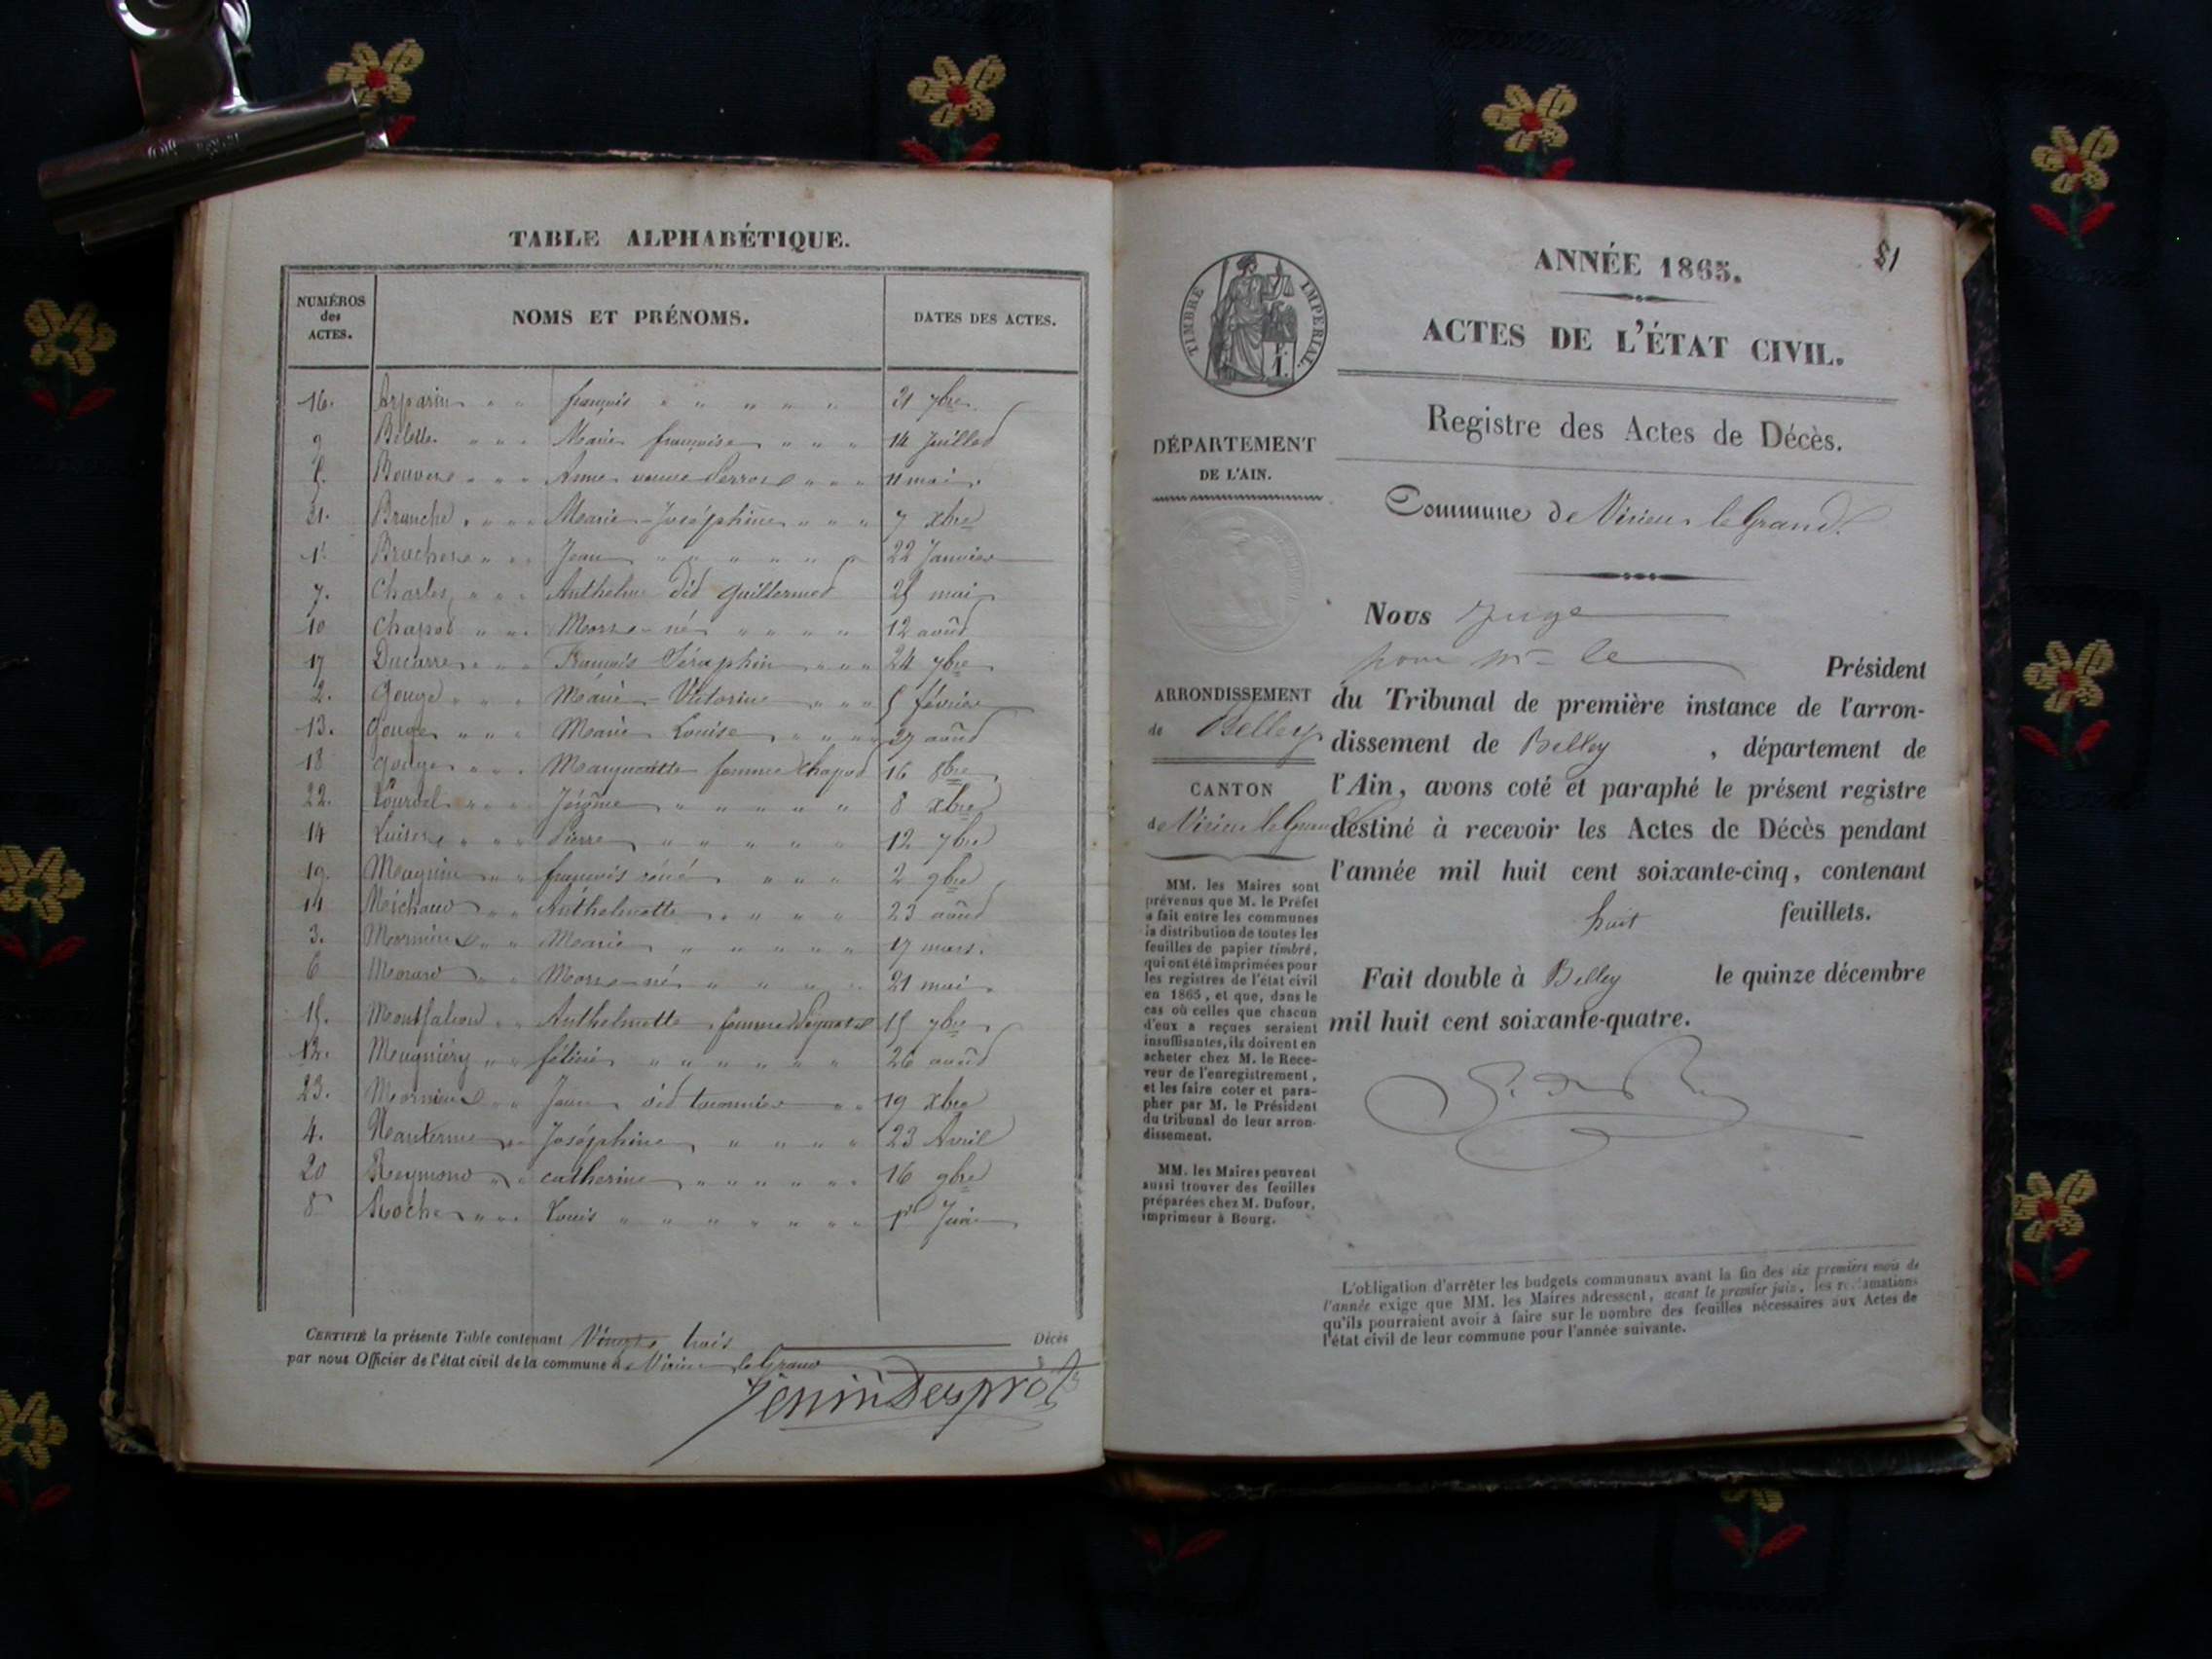 TABLE ALPHABÉTIQUE.
NUMÉROS des ACTES.
NOMS ET PRÉNOMS.
DATES DES ACTES.
16. françois 21 7bre
9 Marie françoise 14 Juillet
5. Anne veuve 11 mai
21. Branche Marie-Joséphine 7 xbre
1. Jean 22 Janvier
7. Charles Anthelme dit guillermet 25 mai
10 Chapot Mort-né 12 août
17 Ducarre François Séraphin 24 7bre
2. Gouge Marie-Victorine 5 février
13. Gouge Marie Louise 27 août
18 Gouge Marguerite femme Chapot 16 8bre
22. Jérôme 8 xbre
14 Pierre 12 7bre
19. Magnin françois réné 2 9bre
11 Michaud Anthelmette 23 août
3. Marie 17 mars.
6 Mort-né 21 mai
15. Montfalcon Anthelmette femme 15 7bre
12. Mugniéry félicie 26 août
23. Jean dit 19 xbre
4. Nanterme Joséphine 23 Avril
20 Reymond catherine 16 9bre
8 Roche Louis 1er Juin
CERTIFIÉ la présente Table contenant Vingt-trois Décès
par nous Officier de l'état civil de la commune de Virieu le Grand
81
ANNÉE 1865.
ACTES DE L'ÉTAT CIVIL.
TIMBRE IMPERIAL.
F. 1.
Registre des Actes de Décès.
DÉPARTEMENT
DE L'AIN.
Commune de Virieu le Grand.
Nous Juge
pour Mr le Président
ARRONDISSEMENT
de Belley
du Tribunal de première instance de l'arron-
dissement de Belley, département de
CANTON
de Virieu le Grand
l'Ain, avons coté et paraphé le présent registre
destiné à recevoir les Actes de Décès pendant
l'année mil huit cent soixante-cinq, contenant
huit feuillets.
Fait double à Belley le quinze décembre
mil huit cent soixante-quatre.
MM. les Maires sont
prévenus que M. le Préfet
a fait entre les communes
la distribution de toutes les
feuilles de papier timbré,
qui ont été imprimées pour
les registres de l'état civil
en 1865, et que, dans le
cas où celles que chacun
d'eux a reçues seraient
insuffisantes, ils doivent en
acheter chez M. le Rece-
veur de l'enregistrement,
et les faire coter et para-
pher par M. le Président
du tribunal de leur arron-
dissement.
MM. les Maires peuvent
aussi trouver des feuilles
préparées chez M. Dufour,
imprimeur à Bourg.
L'obligation d'arrêter les budgets communaux avant la fin des six premiers mois de
l'année exige que MM. les Maires adressent, avant le premier juin, les réclamations
qu'ils pourraient avoir à faire sur le nombre des feuilles nécessaires aux Actes de
l'état civil de leur commune pour l'année suivante.